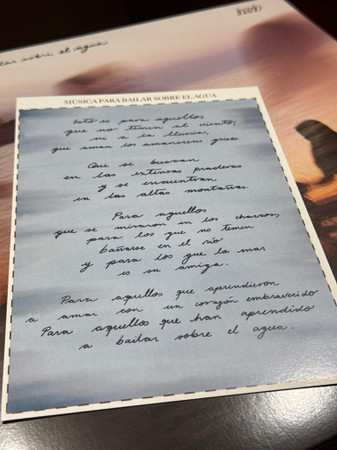 sobre el agua
MÚSICA PARA BAILAR SOBRE EL AGUA
Esto es para aquellos
que no temen al viento,
ni a la lluvia,
que aman los amaneceres grises
Que se buscan
en las extensas praderas
y se encuentran
en las altas montañas.
Para aquellos
que se miraron en los charcos,
para los que no temen
bañarse en el río
y para los que la mar
es su amiga.
Para aquellos que aprendieron
a amar con un corazón embravecido
Para aquellos que han aprendido
a bailar sobre el agua.